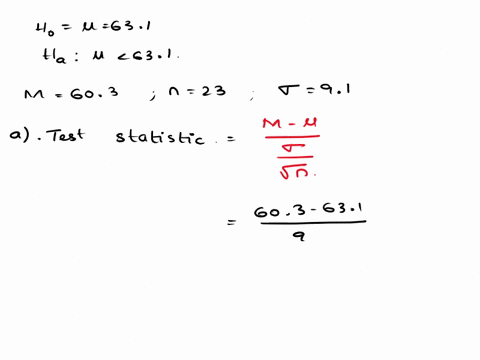 H₀ = μ = 63.1
Ha : μ < 63.1.
M = 60.3 ; n = 23 ; σ = 9.1
a). Test statistic = M - μ / σ / √n.
= 60.3 - 63.1 / 9